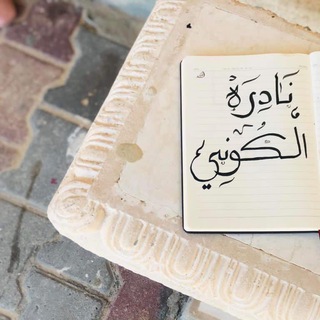 نَادِرَة
الكُوني